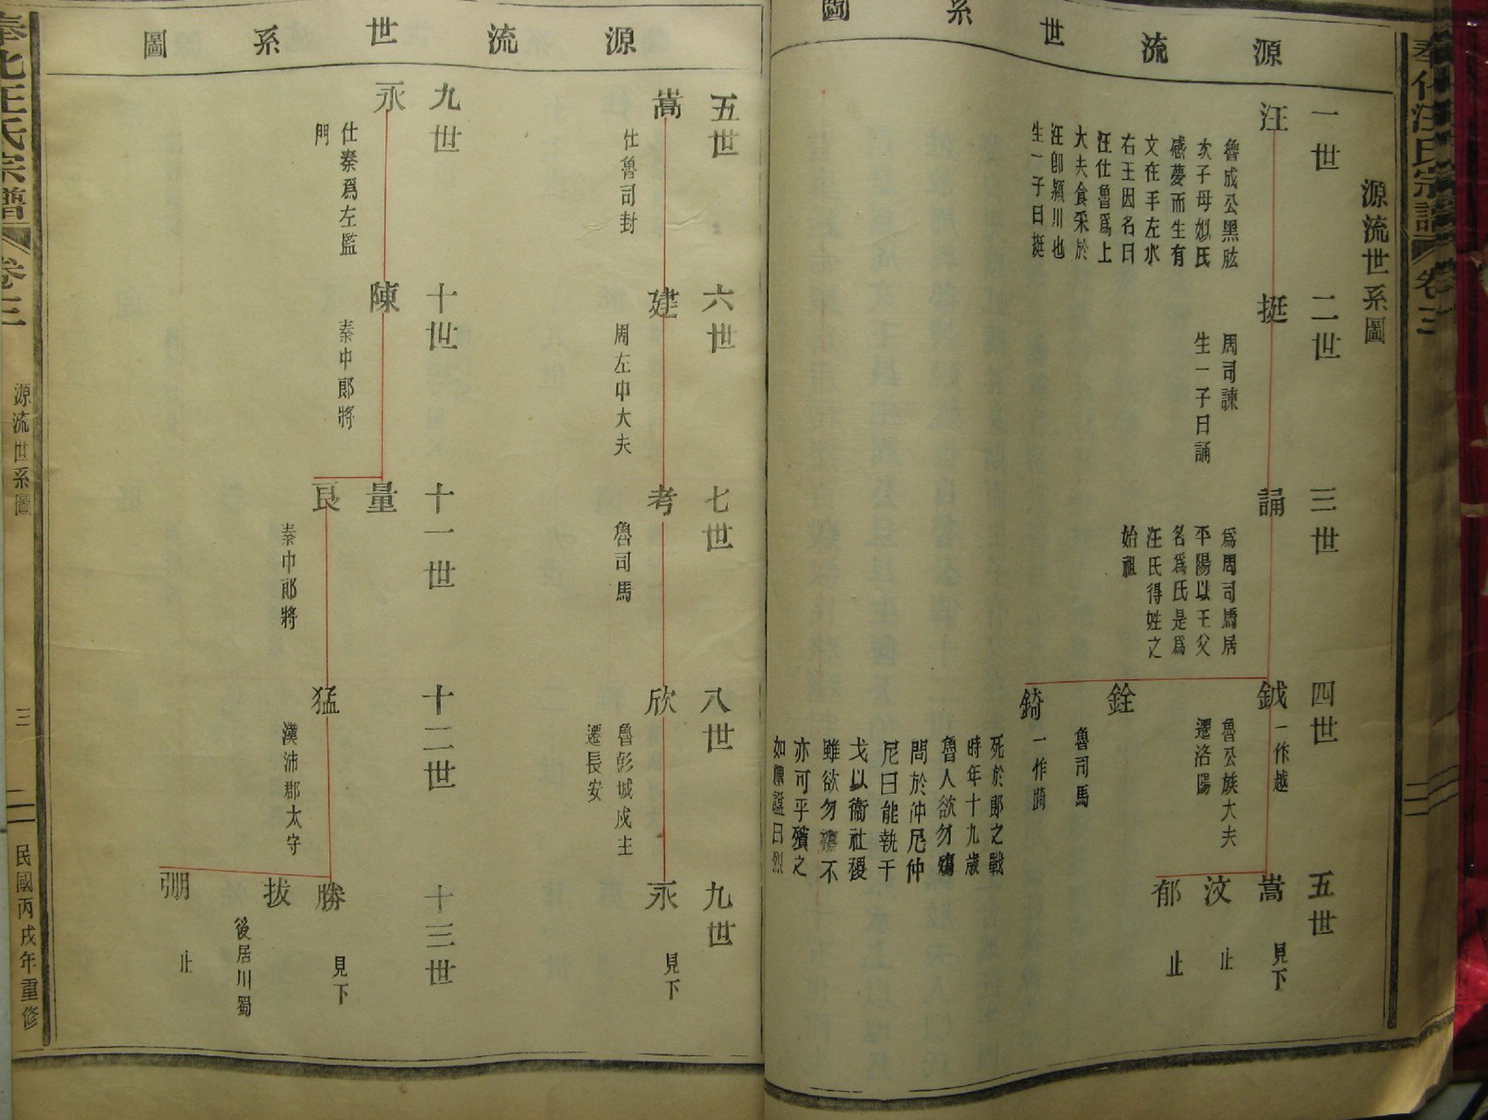 奉化汪氏宗譜 卷三
源流世系圖
源流世系圖
一世
汪
魯成公黑肱
次子母姒氏
感夢而生有
文在手左水
右王因名曰
汪仕魯爲上
大夫食采於
汪卽潁川也
生一子曰挺
二世
挺
周司諫
生一子曰誦
三世
誦
爲周司馬居
平陽以王父
名爲氏是爲
汪氏得姓之
始祖
四世
鉞
一作越
魯公族大夫
遷洛陽
銓
魯司馬
錡
一作踦
死於郎之戰
時年十九歲
魯人欲勿殤
問於仲尼仲
尼曰能執干
戈以衞社稷
雖欲勿殤不
亦可乎殯之
如傎諡曰烈
五世
嵩
見下
汶
止
郁
止
源流世系圖
五世
嵩
仕魯司封
六世
建
周左中大夫
七世
考
魯司馬
八世
欣
魯彭城成主
遷長安
九世
永
見下
九世
永
仕秦爲左監
門
十世
陳
秦中郎將
十一世
量
良
秦中郎將
十二世
猛
漢沛郡太守
十三世
勝
見下
拔
後居川蜀
弸
止
奉化汪氏宗譜
卷三
源流世系圖
三
民國丙戌年重修